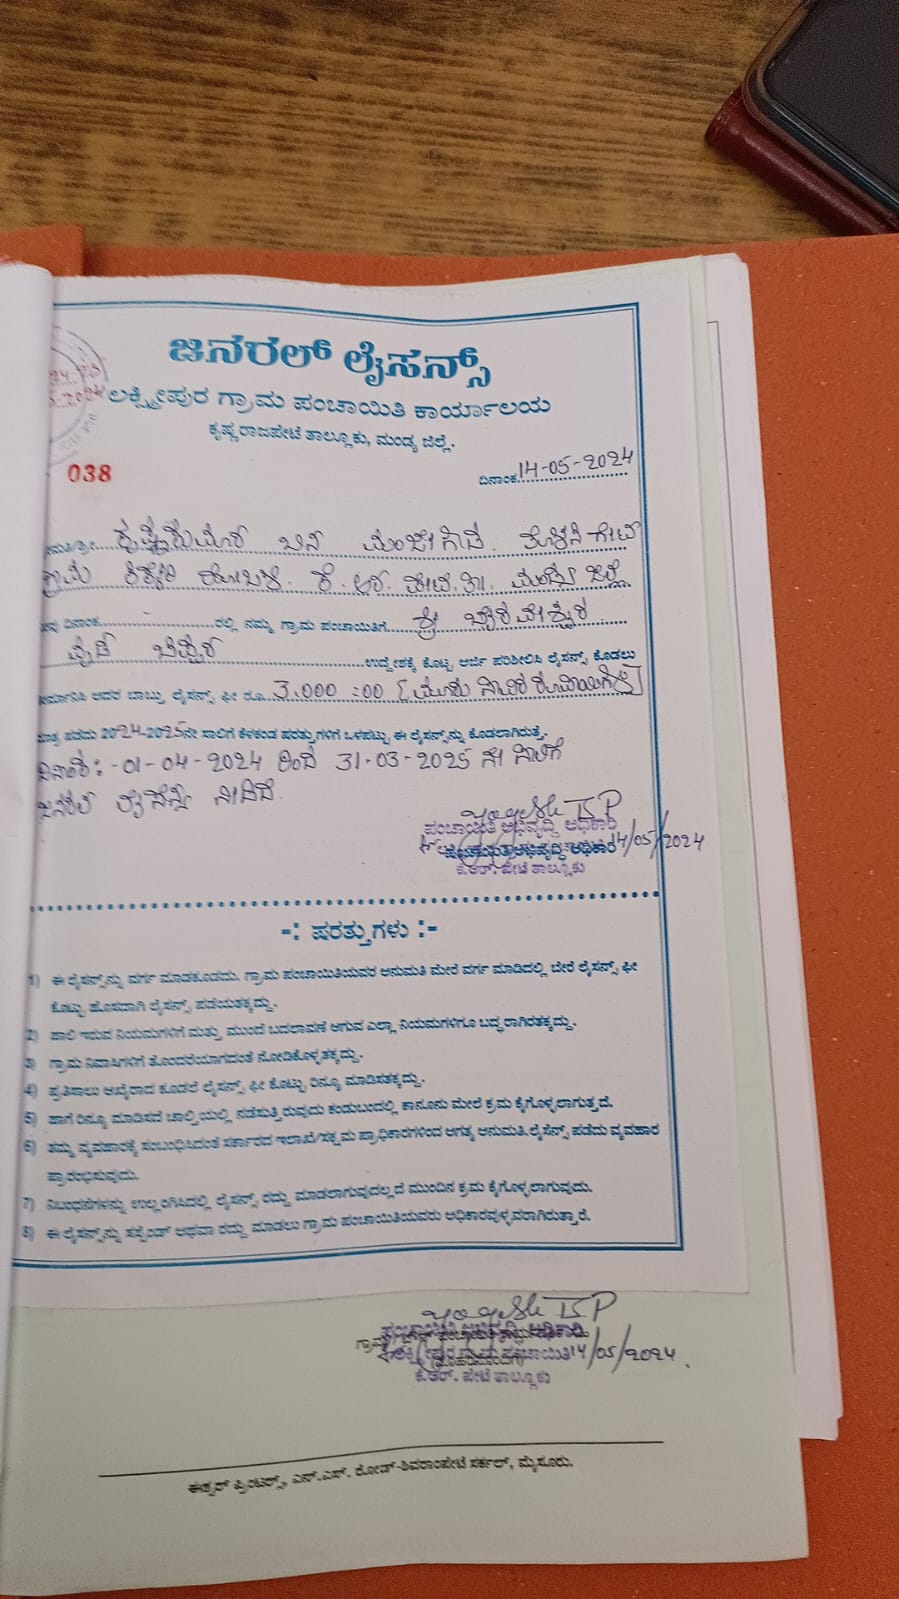 ಜನರಲ್ ಲೈಸನ್ಸ್
ಲಕ್ಷ್ಮೀಪುರ ಗ್ರಾಮ ಪಂಚಾಯಿತಿ ಕಾರ್ಯಾಲಯ
ಕೃಷ್ಣರಾಜಪೇಟೆ ತಾಲ್ಲೂಕು, ಮಂಡ್ಯ ಜಿಲ್ಲೆ.
038
ದಿನಾಂಕ 14-05-2024
ಕೃಷ್ಣೇಕುಮಾರ ಬಿನ್ ಮಂಜೇಗೌಡ
ಕಿಕ್ಕೇರಿ ಹೋಬಳಿ. ಕೆ. ಆರ್. ಪೇಟೆ. ತಾ. ಮಂಡ್ಯ ಜಿಲ್ಲೆ
ದಿನಾಂಕ ರಲ್ಲಿ ನಮ್ಮ ಗ್ರಾಮ ಪಂಚಾಯಿತಿಗೆ ಶ್ರೀ ಭೈರವೇಶ್ವರ
ಉದ್ದೇಶಕ್ಕೆ ಕೊಟ್ಟ ಅರ್ಜಿ ಪರಿಶೀಲಿಸಿ ಲೈಸನ್ಸ್ ಕೊಡಲು
ತೀರ್ಮಾನಿಸಿ ಅದರ ಬಾಬ್ತು ಲೈಸನ್ಸ್ ಫೀ ರೂ. 3.000 =00 [ಮೂರು ಸಾವಿರ ರೂಪಾಯಿಗಳು]
ಮಾತ್ರ ಪಡೆದು 2024-2025ನೇ ಸಾಲಿಗೆ ಕೆಳಕಂಡ ಷರತ್ತುಗಳಿಗೆ ಒಳಪಟ್ಟು ಈ ಲೈಸನ್ಸ್‌ನ್ನು ಕೊಡಲಾಗಿರುತ್ತೆ.
ದಿನಾಂಕ: -01-04-2024 ರಿಂದ 31-03-2025 ನೇ ಸಾಲಿಗೆ
ಜನರಲ್ ಲೈಸೆನ್ಸ್ ನೀಡಿದೆ.
Yogesh T S P
ಪಂಚಾಯಿತಿ ಅಭಿವೃದ್ಧಿ ಅಧಿಕಾರಿ
14/05/2024
ಕೆ.ಆರ್. ಪೇಟೆ ತಾಲ್ಲೂಕು
-: ಷರತ್ತುಗಳು :-
1) ಈ ಲೈಸನ್ಸ್‌ನ್ನು ವರ್ಗ ಮಾಡಕೂಡದು. ಗ್ರಾಮ ಪಂಚಾಯಿತಿಯವರ ಅನುಮತಿ ಮೇರೆ ವರ್ಗ ಮಾಡಿದಲ್ಲಿ ಬೇರೆ ಲೈಸನ್ಸ್ ಫೀ
ಕೊಟ್ಟು ಹೊಸದಾಗಿ ಲೈಸನ್ಸ್ ಪಡೆಯತಕ್ಕದ್ದು.
2) ಹಾಲಿ ಇರುವ ನಿಯಮಗಳಿಗೆ ಮತ್ತು ಮುಂದೆ ಬದಲಾವಣೆ ಆಗುವ ಎಲ್ಲಾ ನಿಯಮಗಳಿಗೂ ಬದ್ಧರಾಗಿರತಕ್ಕದ್ದು.
3) ಗ್ರಾಮ ನಿವಾಸಿಗಳಿಗೆ ತೊಂದರೆಯಾಗದಂತೆ ನೋಡಿಕೊಳ್ಳತಕ್ಕದ್ದು.
4) ಪ್ರತಿಸಾಲು ಆಖೈರಾದ ಕೂಡಲೆ ಲೈಸನ್ಸ್ ಫೀ ಕೊಟ್ಟು ರಿನ್ಯೂ ಮಾಡಿಸತಕ್ಕದ್ದು.
5) ಹಾಗೆ ರಿನ್ಯೂ ಮಾಡಿಸದೆ ಚಾಲ್ತಿಯಲ್ಲಿ ನಡೆಸುತ್ತಿರುವುದು ಕಂಡುಬಂದಲ್ಲಿ ಕಾನೂನು ಮೇಲೆ ಕ್ರಮ ಕೈಗೊಳ್ಳಲಾಗುತ್ತದೆ.
6) ತಮ್ಮ ವ್ಯವಹಾರಕ್ಕೆ ಸಂಬಂಧಿಸಿದಂತೆ ಸರ್ಕಾರದ ಇಲಾಖೆ/ಸಕ್ಷಮ ಪ್ರಾಧಿಕಾರಗಳಿಂದ ಅಗತ್ಯ ಅನುಮತಿ.ಲೈಸೆನ್ಸ್ ಪಡೆದು ವ್ಯವಹಾರ
ಪ್ರಾರಂಭಿಸುವುದು.
7) ನಿಬಂಧನೆಗಳನ್ನು ಉಲ್ಲಂಗಿಸಿದಲ್ಲಿ ಲೈಸನ್ಸ್ ರದ್ದು ಮಾಡಲಾಗುವುದಲ್ಲದೆ ಮುಂದಿನ ಕ್ರಮ ಕೈಗೊಳ್ಳಲಾಗುವುದು.
8) ಈ ಲೈಸನ್ಸ್‌ನ್ನು ಸಸ್ಪೆಂಡ್ ಅಥವಾ ರದ್ದು ಮಾಡಲು ಗ್ರಾಮ ಪಂಚಾಯಿತಿಯವರು ಅಧಿಕಾರವುಳ್ಳವರಾಗಿರುತ್ತಾರೆ.
Yogesh T S P
14/05/2024
ಕೆ.ಆರ್. ಪೇಟೆ ತಾಲ್ಲೂಕು
ಈಶ್ವರ್ ಪ್ರಿಂಟರ್ಸ್, ಎನ್.ಎಸ್. ರೋಡ್-ಶಿವರಾಂಪೇಟೆ ಸರ್ಕಲ್, ಮೈಸೂರು.